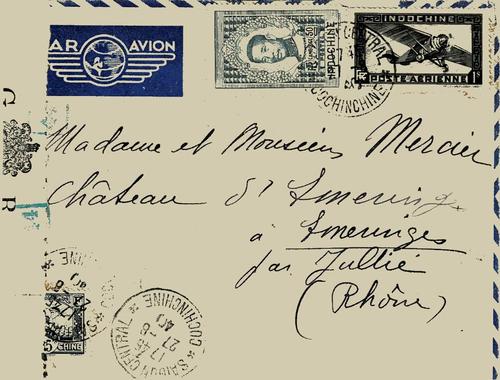 PAR AVION
INDOCHINE
INDOCHINE
POSTE AERIENNE
COCHINCHINE
Madame et Monsieur Mercier
Château
à
par Jullié
(Rhône)
SAIGON CENTRAL
COCHINCHINE
17 45
27 - 8
40
CHINE
C
R